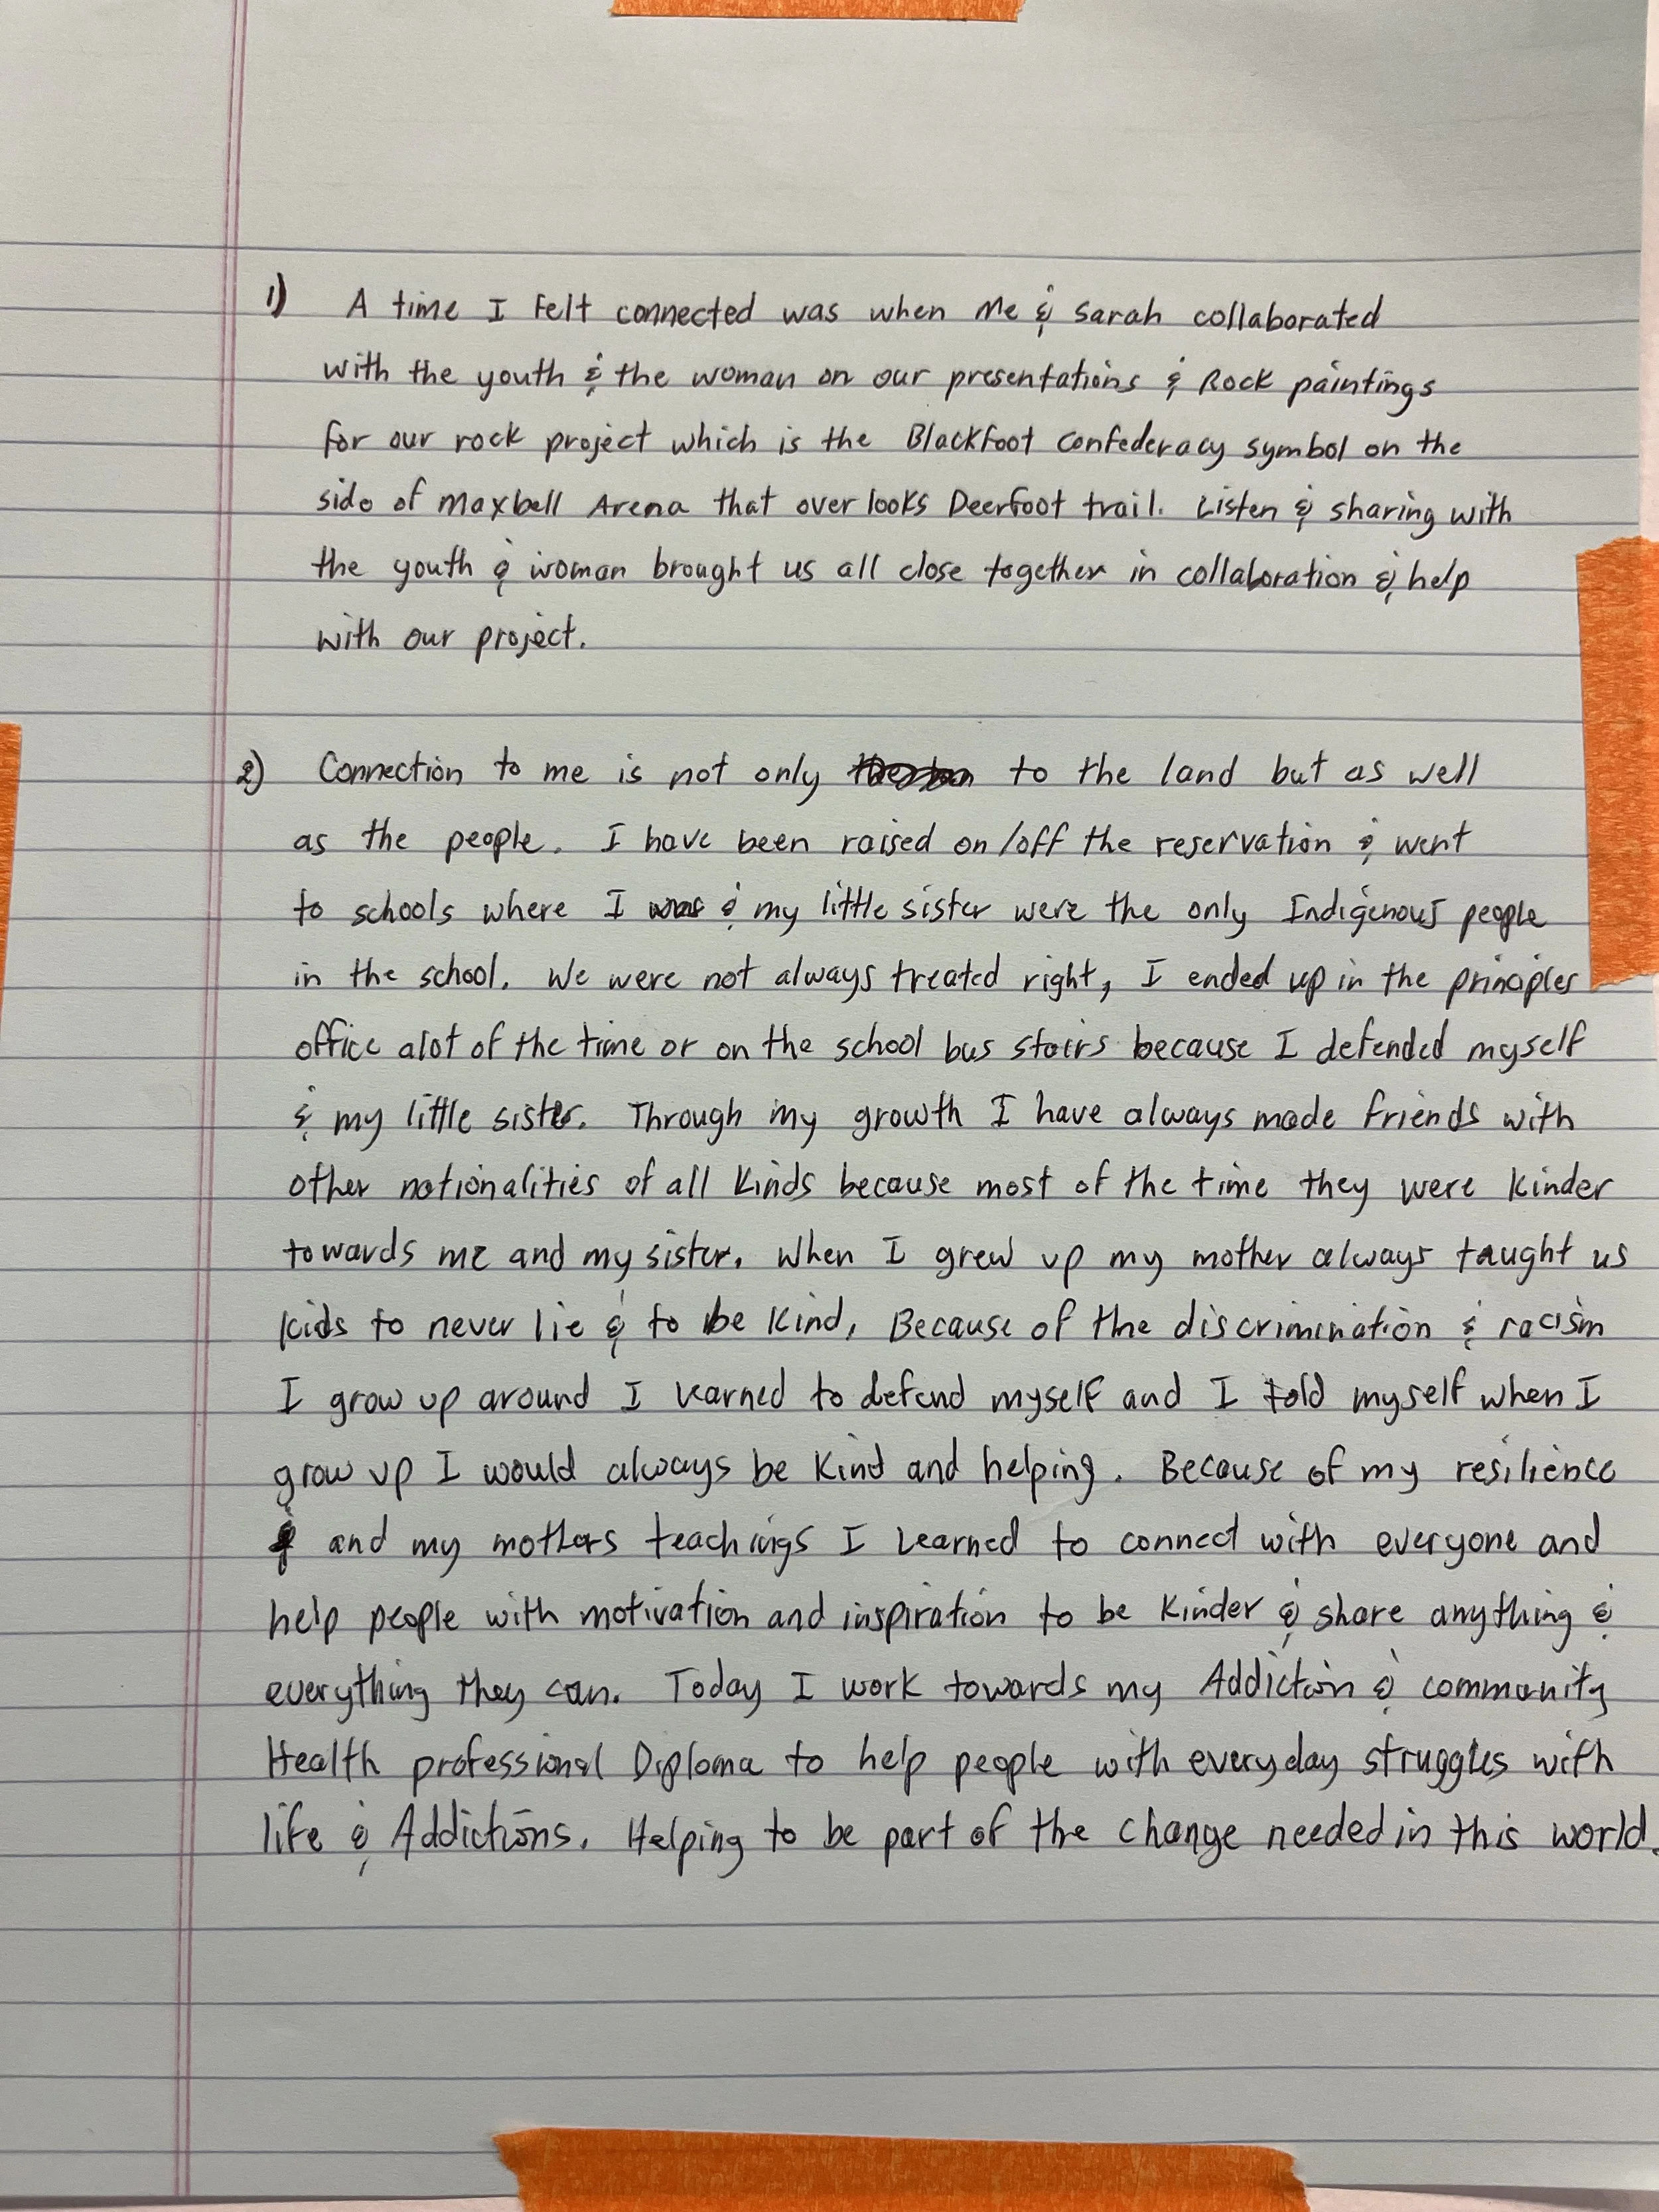 1) A time I felt connected was when me & Sarah collaborated
with the youth & the woman on our presentations & Rock paintings
for our rock project which is the Blackfoot Confederacy symbol on the
side of Maxbell Arena that over looks Deerfoot trail. Listen & sharing with
the youth & woman brought us all close together in collaboration & help
with our project.
2) Connection to me is not only to the land but as well
as the people. I have been raised on/off the reservation & went
to schools where I was & my little sister were the only Indigenous people
in the school. We were not always treated right, I ended up in the principles
office alot of the time or on the school bus stairs because I defended myself
& my little sister. Through my growth I have always made friends with
other nationalities of all kinds because most of the time they were kinder
towards me and my sister. When I grew up my mother always taught us
kids to never lie & to be kind. Because of the discrimination & racism
I grow up around I learned to defend myself and I told myself when I
grow up I would always be kind and helping. Because of my resilience
and my mothers teachings I learned to connect with everyone and
help people with motivation and inspiration to be kinder & share anything &
everything they can. Today I work towards my Addiction & community
Health professional Diploma to help people with everyday struggles with
life & Addictions. Helping to be part of the change needed in this world.